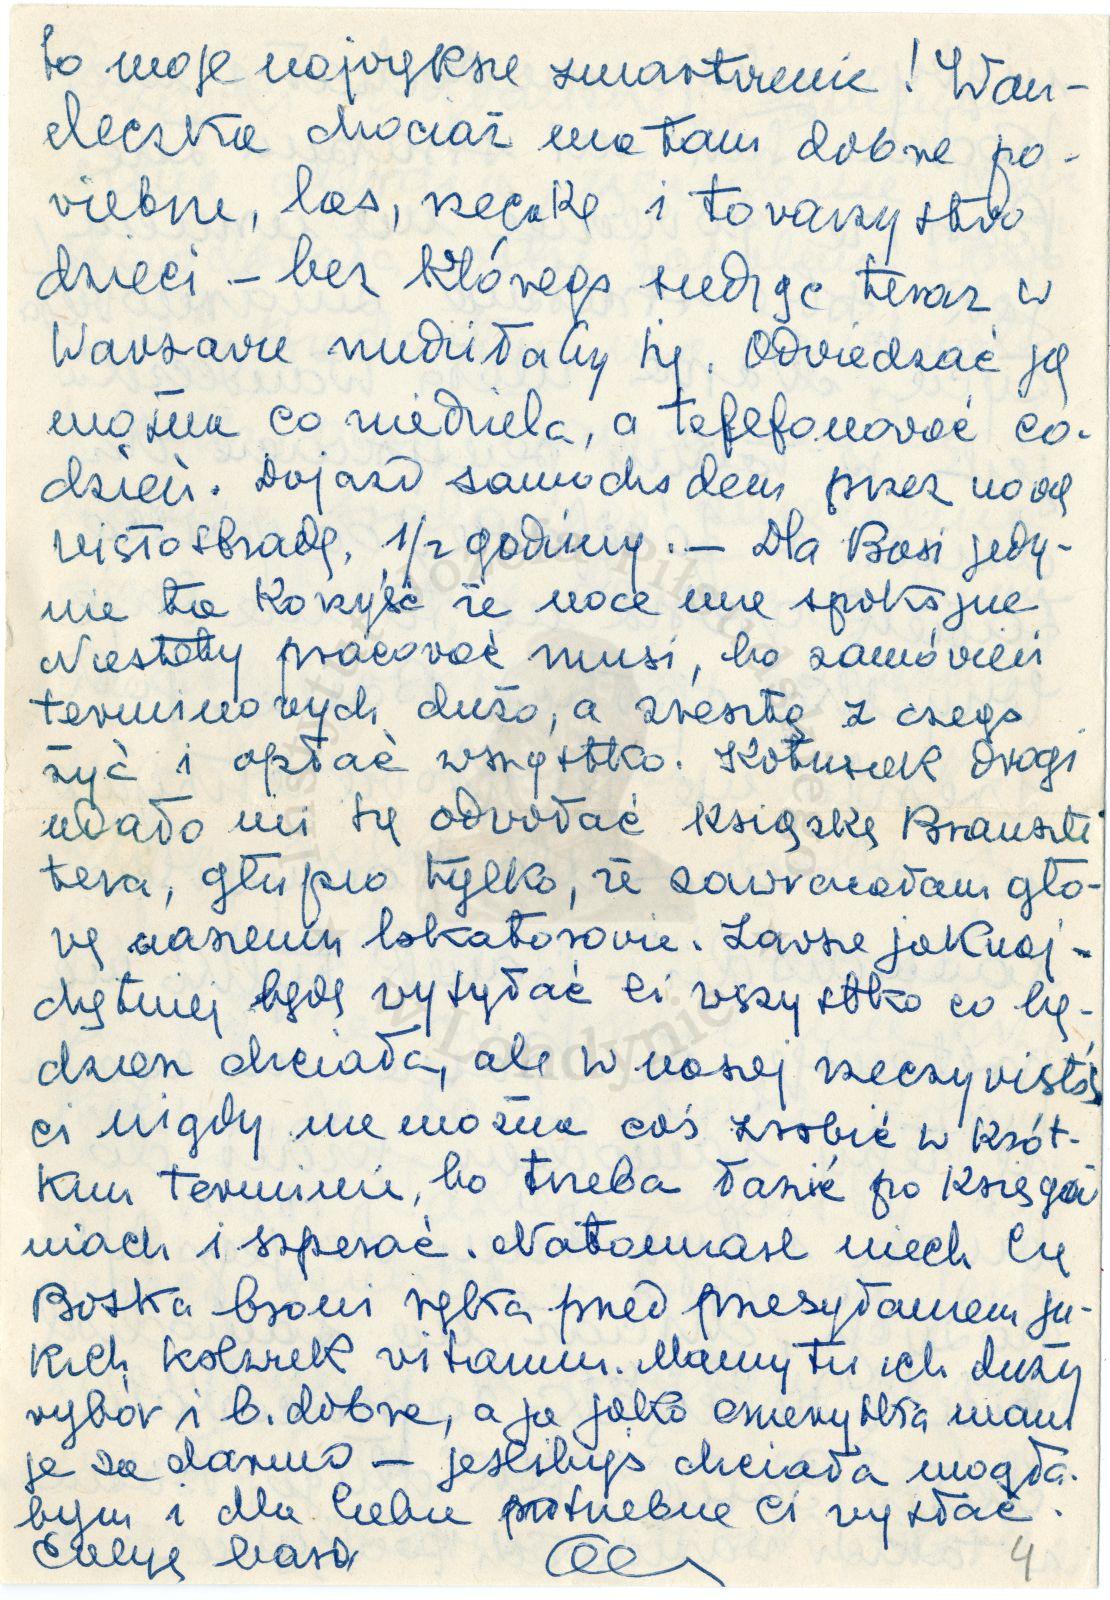 to moje największe zmartwienie! Wan-
deczka chociaż ma tam dobre po-
wietrze, las, rzeczkę i towarzystwo
dzieci – bez którego siedząc teraz w
Warszawie nudziłaby się. Odwiedzać ją
można co niedziela, a telefonować co-
dzień. Dojazd samochodem przez nową
wisłostradę, 1/2 godziny. – Dla Basi jedy-
nie ta korzyść że noce ma spokojne
Niestety pracować musi, bo zamówień
terminowych dużo, a zresztą z czego
żyć i opłać wszystko. Kotusiek drogi
udało mi się odwołać książkę Braunsti
tera, głupio tylko, że zawracałam gło-
wę naszemu lokatorowi. Zawsze jaknaj-
chętniej będę wysyłać Ci wszystko co bę-
dziesz chciała, ale w naszej rzeczywistoś
ci nigdy nie można coś zrobić w krót-
kim terminie, bo trzeba łazić po księgar
niach i szperać. Natomiast niech Cię
Boska broni rębka przed przesyłaniem ja-
kich kolwiek vitamin. Mamy tu ich duży
wybór i b. dobre, a ja jako emerytka mam
je za darmo – jeślibyś chciała mogła-
bym i dla Ciebie potrzebne Ci wysłać.
Całuję Wasza
4
Instytut Józefa Piłsudskiego
w Londynie